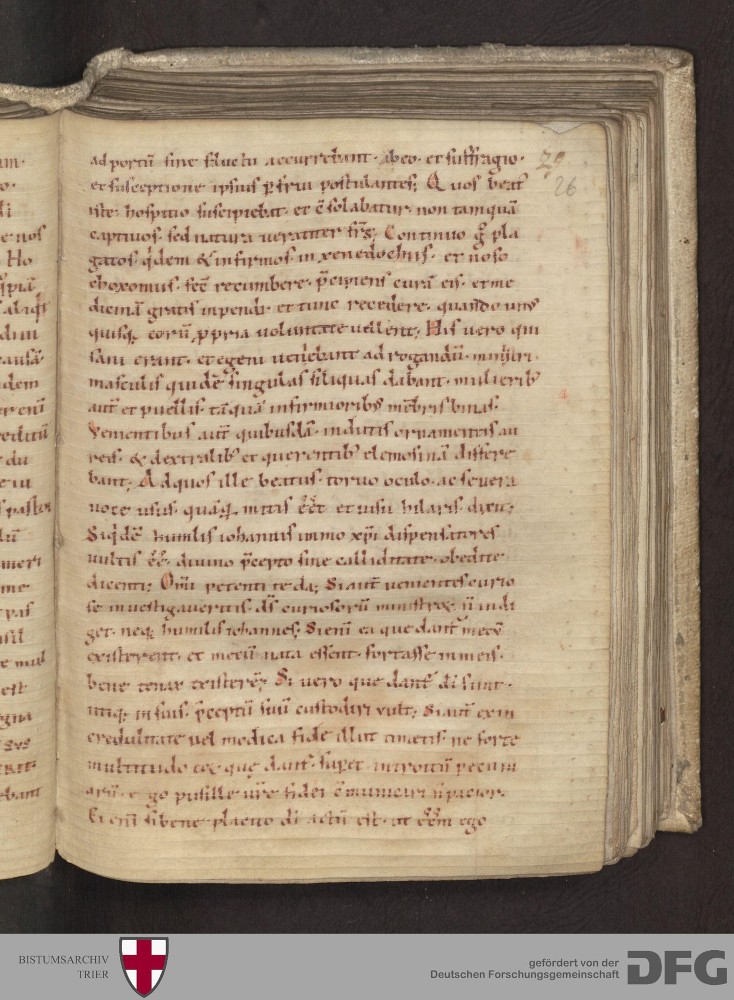 ad portū sine fluctu accurrebant ab eo et suffragio
et susceptione ipsius p̄frui postulantes; Quos beat᷒
iste hospitio suscipiebat et c̄solabatur non tamquā
captiuos sed natura ueraciter fr̄s; Continuo g̊ pla
gatos q̇dem & infirmos in xenedochiis et noso
choxomiis fec̄ recumbere p̄cipiens curā eis et me
dicinā gratis inpendi et tunc recedere quando unus
quisq; eorū ꝓpria uoluntate uellent; His uero qui
sani erant et egeni uenebant ad rogandū ministri
masculis quidē singulas siliquas dabant mulierib᷒
aut̄ et puellis tāquā infirmioribus mēbris binas
Venientibus aut̄ quibusdā indutis ornamentis au
reis & dextralib᷒ et querentib᷒ elemosinā differe
bant; Ad quos ille beatus toruo oculo ac seuera
uoce usus quāq̄ mitis eēt et uisu hilaris dixit;
Siq̇dē humilis iohannis immo xp̄i dispensatores
uultis ēē diuino p̄cepto sine calliditate obedite
dicenti; Om̄i petenti te da; Si aut̄ uenientes curio
se inuestigaueritis d̄s curiosorū ministroꝝ n̄ indi
get neq; humilis iohannes; Si eni ea que dant̄ mecū
existerent et mecū nata essent fortasse in meis
bene tenax existerē; Si uero que dant̄ di sunt
utiq; in suis p̄ceptū suū custodiri uult; Si aut̄ ex in
credulitate uel modica fide illut timetis ne forte
multitudo eoꝝ que dant̄ sup̄et introitū pecuni
arū ego pusille ur̄e fidei c̄municari n̄ pacior
Si eni si bene placito di actū est ut
ego
20
26
BISTUMSARCHIV
TRIER
gefördert von der
Deutschen Forschungsgemeinschaft
DFG